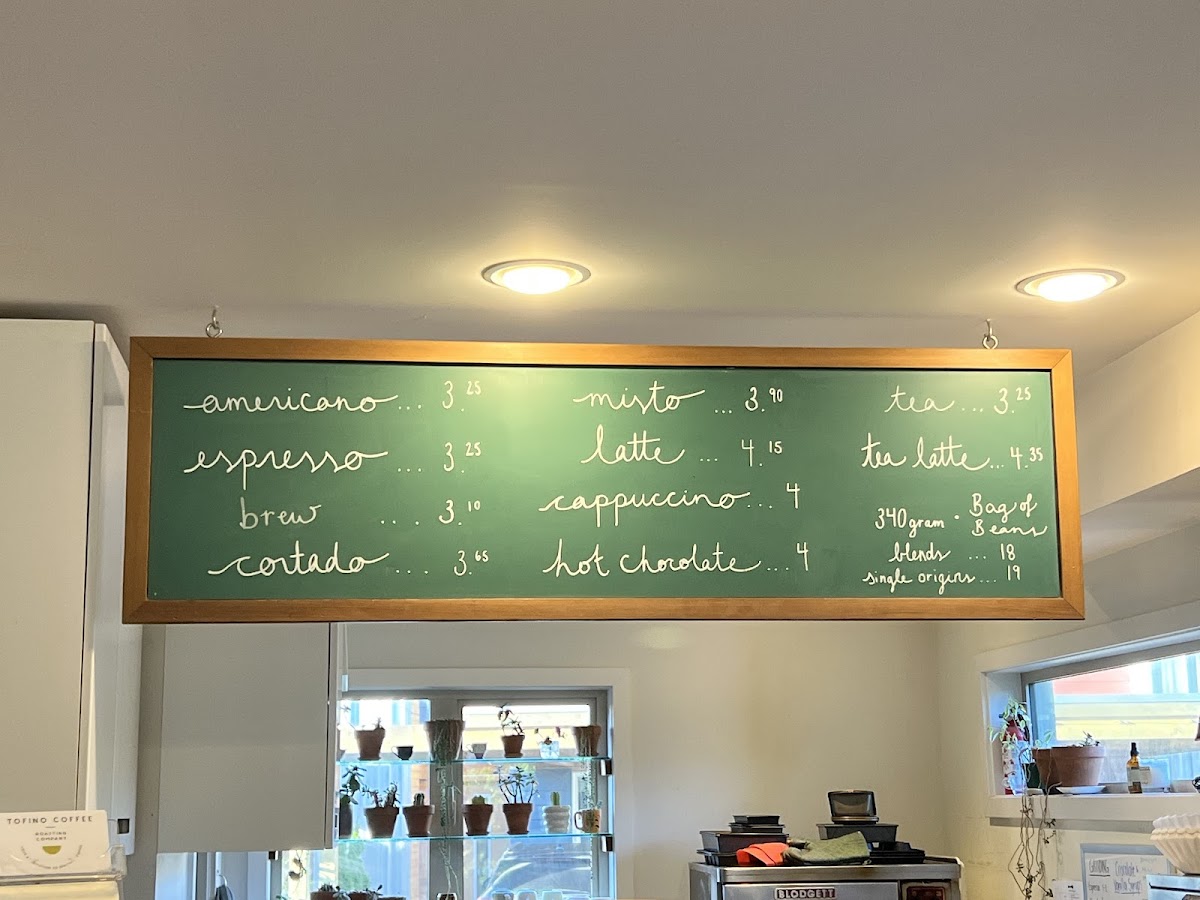 americano... 3.25
espresso ... 3.25
brew .... 3.10
cortado ... 3.65
misto ... 3.90
latte ... 4.15
cappuccino... 4
hot chocolate... 4
tea ... 3.25
tea latte... 4.35
340gram · Bag of Beans
blends ... 18
single origins... 19
TOFINO COFFEE
ROASTING
COMPANY
BLODGETT